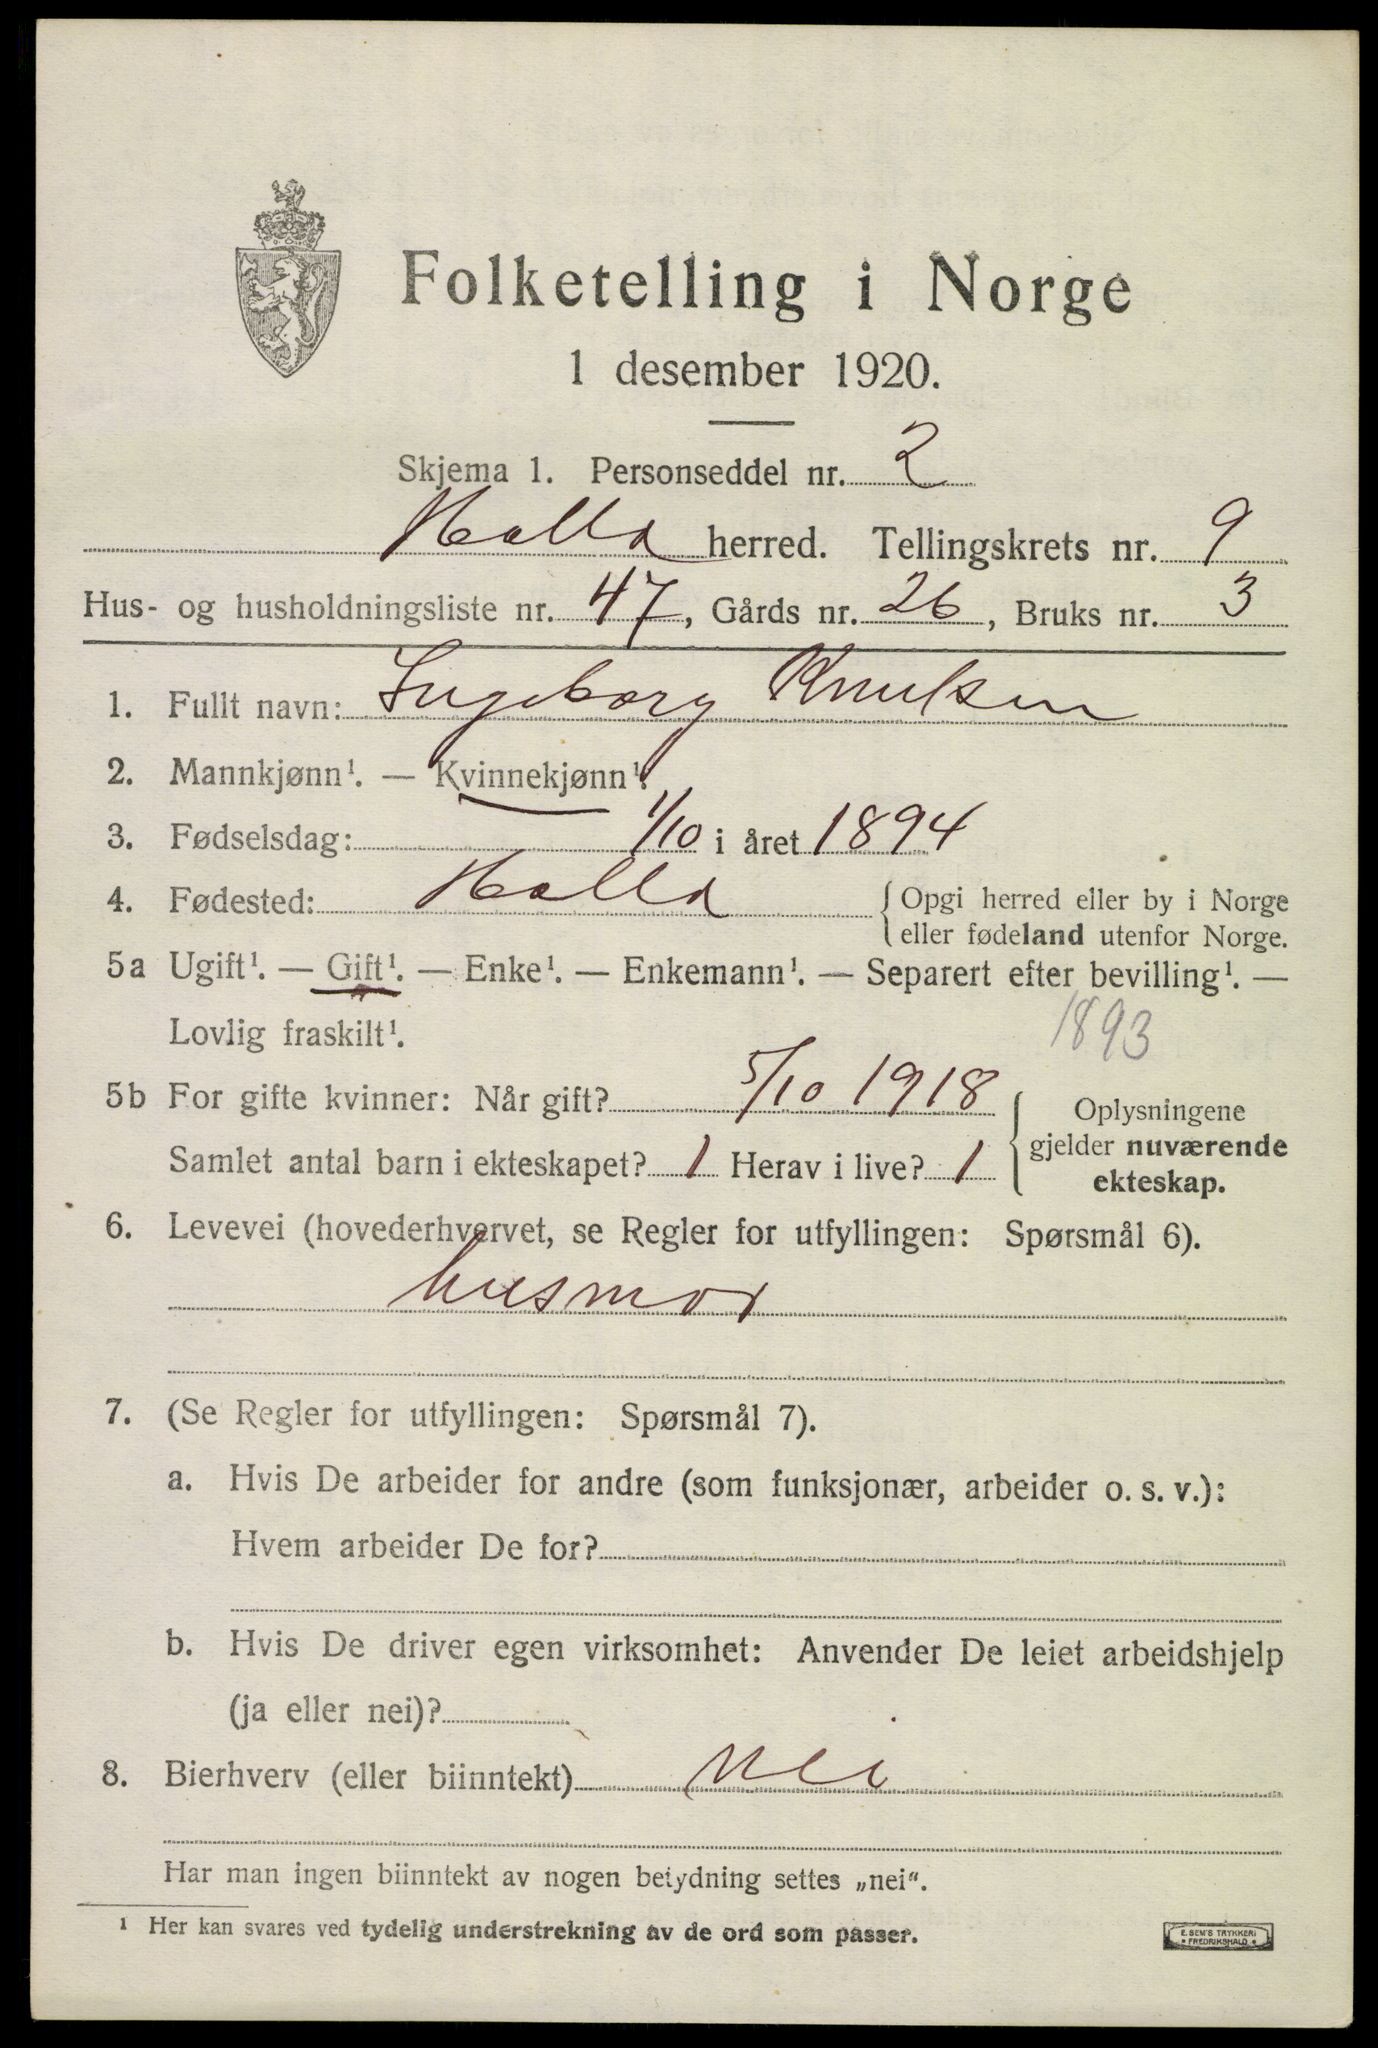 Folketelling i Norge
1 desember 1920.
Skjema 1. Personseddel nr. 2
Holla herred. Tellingskrets nr. 9
Hus- og husholdningsliste nr. 47, Gårds nr. 26, Bruks nr. 3
1. Fullt navn: Ingeborg Knutsen
2. Mannkjønn¹. — Kvinnekjønn¹.
3. Fødselsdag: 1/10 i året 1894
4. Fødested: Holla { Opgi herred eller by i Norge
eller fødeland utenfor Norge.
5a Ugift¹. — Gift¹. — Enke¹. — Enkemann¹. — Separert efter bevilling¹. —
Lovlig fraskilt¹. 1893
5b For gifte kvinner: Når gift? 5/10 1918
Samlet antal barn i ekteskapet? 1 Herav i live? 1
Oplysningene
gjelder nuværende
ekteskap.
6. Levevei (hovederhvervet, se Regler for utfyllingen: Spørsmål 6).
husmor
7. (Se Regler for utfyllingen: Spørsmål 7).
a. Hvis De arbeider for andre (som funksjonær, arbeider o. s. v.):
Hvem arbeider De for?
b. Hvis De driver egen virksomhet: Anvender De leiet arbeidshjelp
(ja eller nei)?
8. Bierhverv (eller biinntekt) nei
Har man ingen biinntekt av nogen betydning settes „nei“.
¹ Her kan svares ved tydelig understrekning av de ord som passer.
E. SEM'S TRYKKERI
FREDRIKSHALD